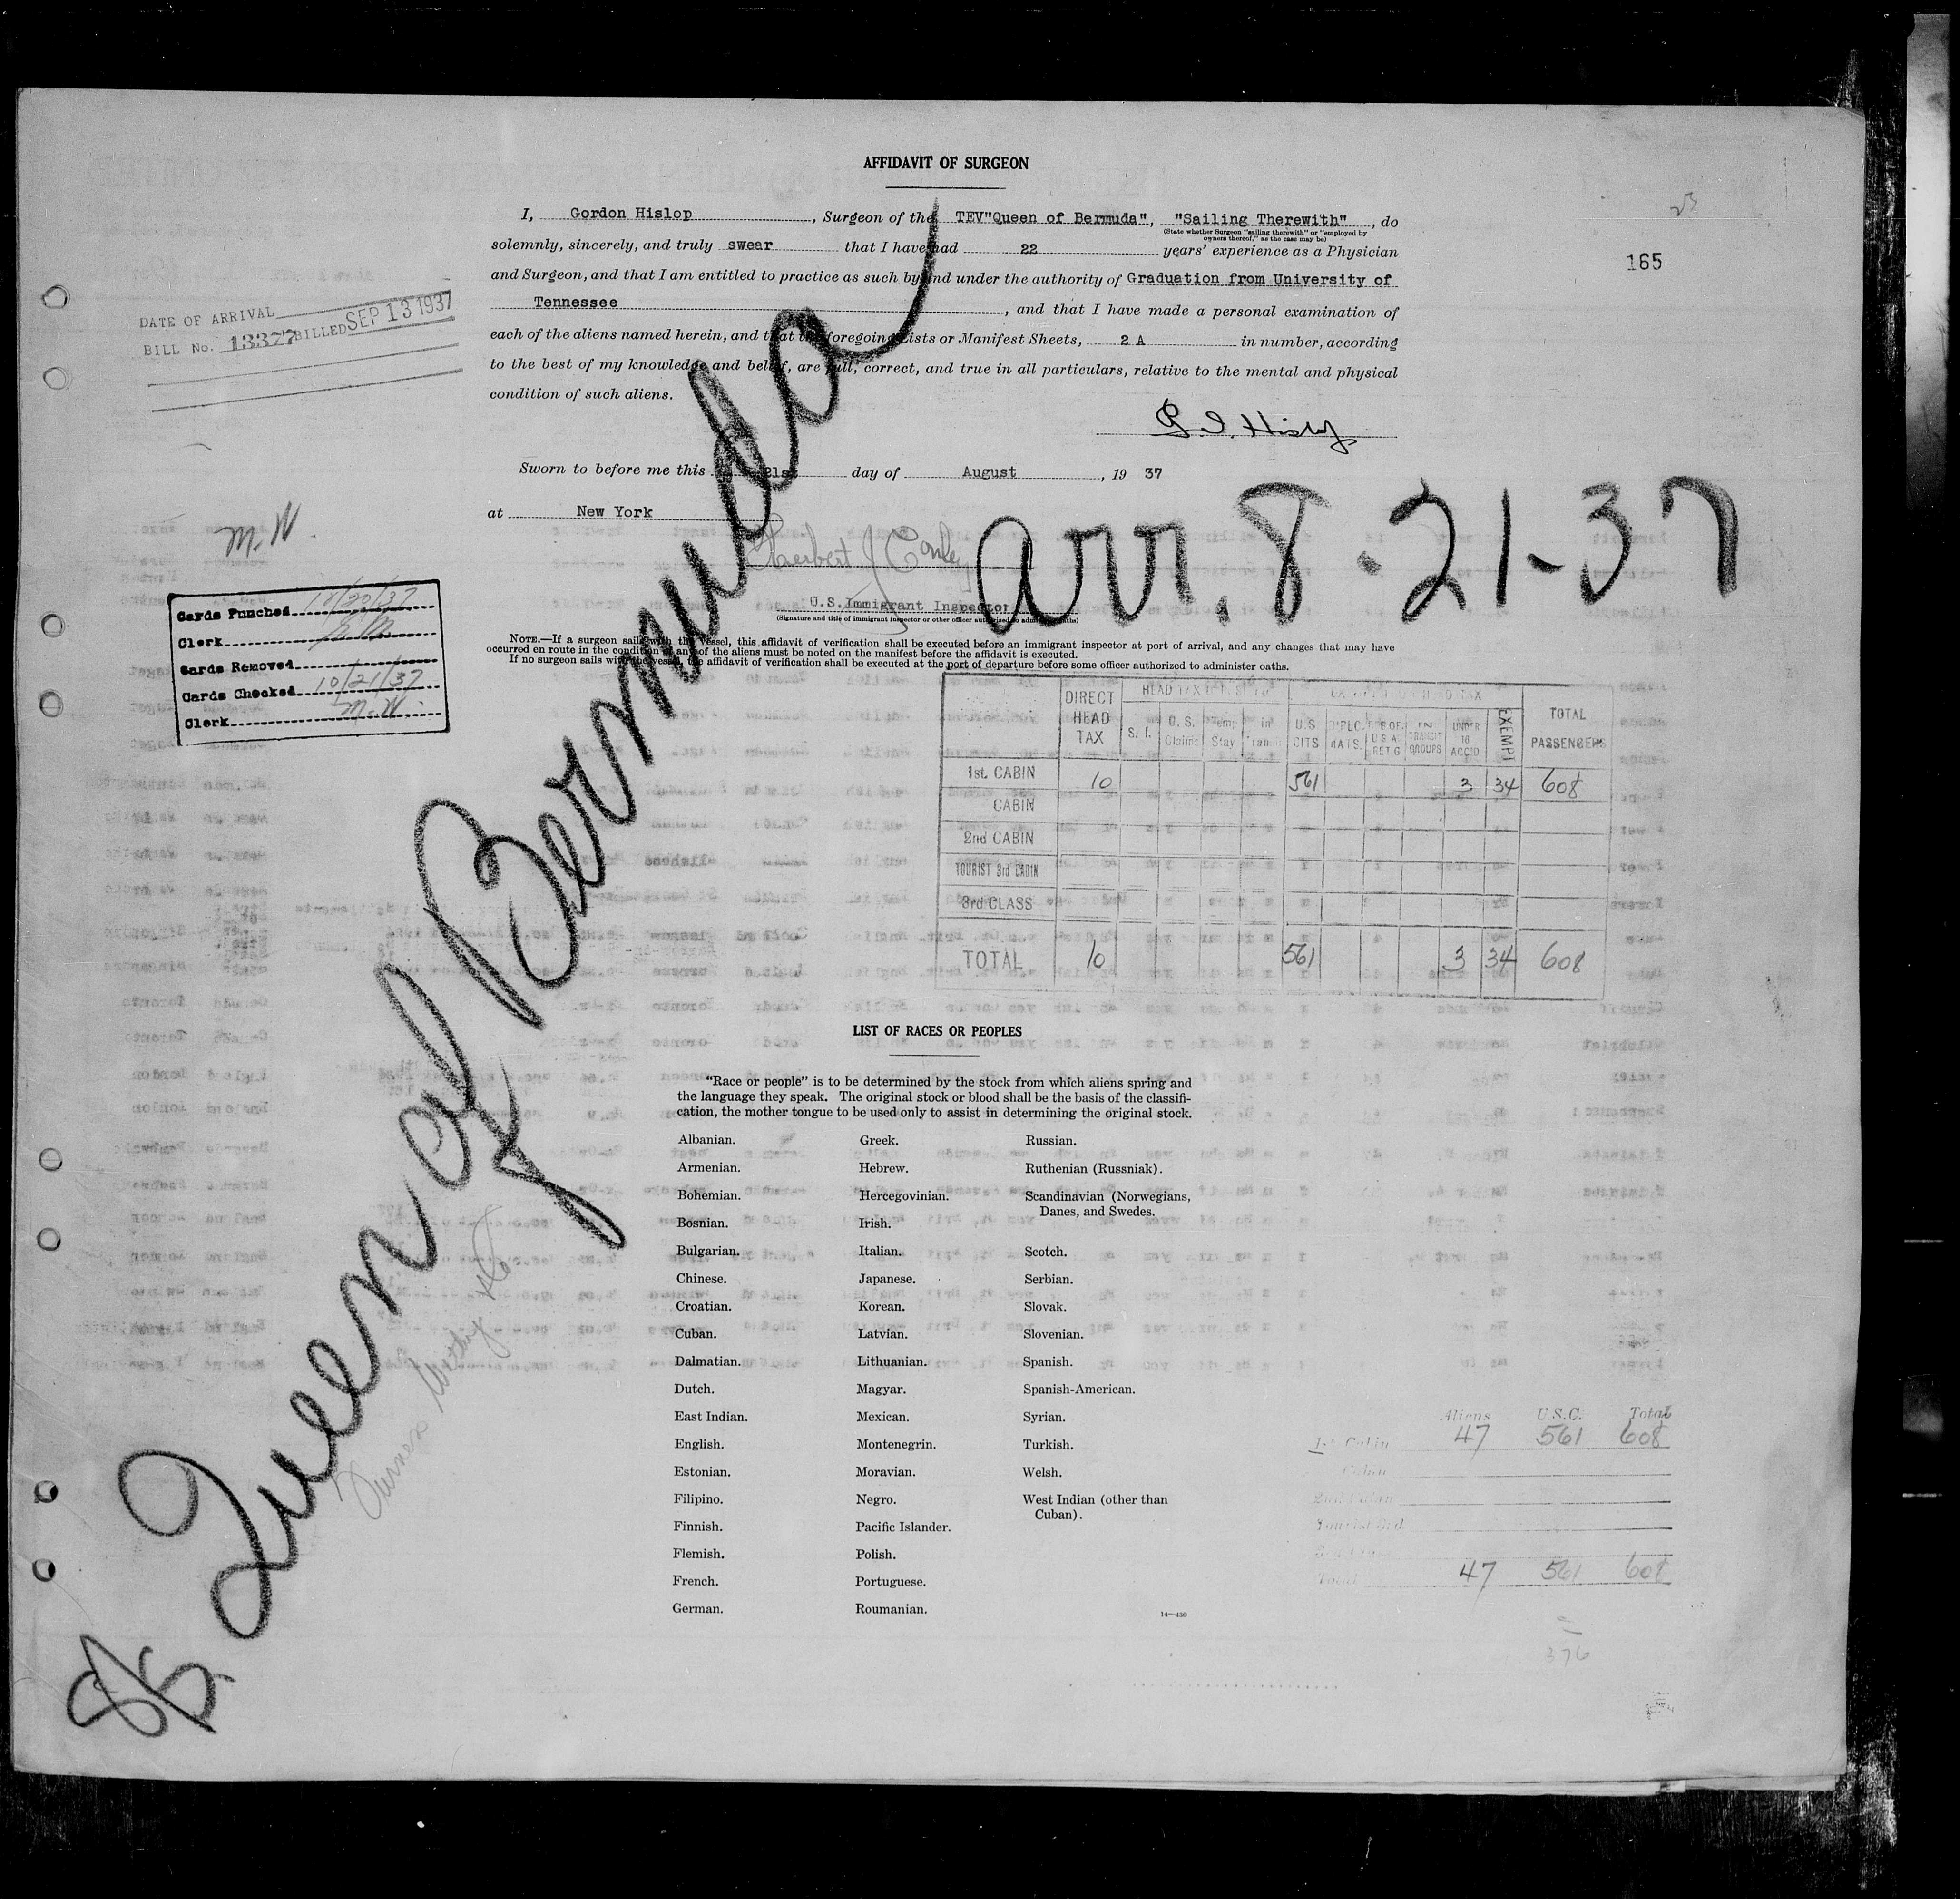 AFFIDAVIT OF SURGEON
I, Gordon Hislop, Surgeon of the TEV "Queen of Bermuda", "Sailing Therewith", do
(State whether Surgeon "sailing therewith" or "employed by
owners thereof," as the case may be)
solemnly, sincerely, and truly swear that I have had 22 years' experience as a Physician
and Surgeon, and that I am entitled to practice as such by and under the authority of Graduation from University of
Tennessee, and that I have made a personal examination of
each of the aliens named herein, and that the foregoing Lists or Manifest Sheets, 2 A in number, according
to the best of my knowledge and belief, are full, correct, and true in all particulars, relative to the mental and physical
condition of such aliens.
G. I. Hislop
Sworn to before me this 21st day of August, 19 37
at New York
Herbert J Conley
U.S. Immigrant Inspector
(Signature and title of immigrant inspector or other officer authorized to administer oaths)
NOTE.—If a surgeon sails with the vessel, this affidavit of verification shall be executed before an immigrant inspector at port of arrival, and any changes that may have
occurred en route in the condition of any of the aliens must be noted on the manifest before the affidavit is executed.
If no surgeon sails with the vessel, the affidavit of verification shall be executed at the port of departure before some officer authorized to administer oaths.
165
DATE OF ARRIVAL
BILL No. 13377 BILLED SEP 13 1937
M.W.
Cards Punched 10/20/37
Clerk
Cards Removed
Cards Checked 10/21/37
Clerk M.W.
SS. Queen of Bermuda
arr. 8-21-37
Furness Withy
DIRECT HEAD TAX S. I. U. S. Claims Temp Stay U.S. CITS DIPLOMATS IN TRANSIT GROUPS UNDER 16 ACCTD EXEMPT TOTAL PASSENGERS
1st. CABIN 10 561 3 34 608
CABIN
2nd CABIN
TOURIST 3rd CABIN
3rd CLASS
TOTAL 10 561 3 34 608
LIST OF RACES OR PEOPLES
"Race or people" is to be determined by the stock from which aliens spring and
the language they speak. The original stock or blood shall be the basis of the classifi-
cation, the mother tongue to be used only to assist in determining the original stock.
Albanian.
Armenian.
Bohemian.
Bosnian.
Bulgarian.
Chinese.
Croatian.
Cuban.
Dalmatian.
Dutch.
East Indian.
English.
Estonian.
Filipino.
Finnish.
Flemish.
French.
German.
Greek.
Hebrew.
Hercegovinian.
Irish.
Italian.
Japanese.
Korean.
Latvian.
Lithuanian.
Magyar.
Mexican.
Montenegrin.
Moravian.
Negro.
Pacific Islander.
Polish.
Portuguese.
Roumanian.
Russian.
Ruthenian (Russniak).
Scandinavian (Norwegians,
Danes, and Swedes.
Scotch.
Serbian.
Slovak.
Slovenian.
Spanish.
Spanish-American.
Syrian.
Turkish.
Welsh.
West Indian (other than
Cuban).
14—430
Aliens U.S.C. Total
1st Cabin 47 561 608
Cabin
2nd Cabin
Tourist 3rd
Total 47 561 608
376